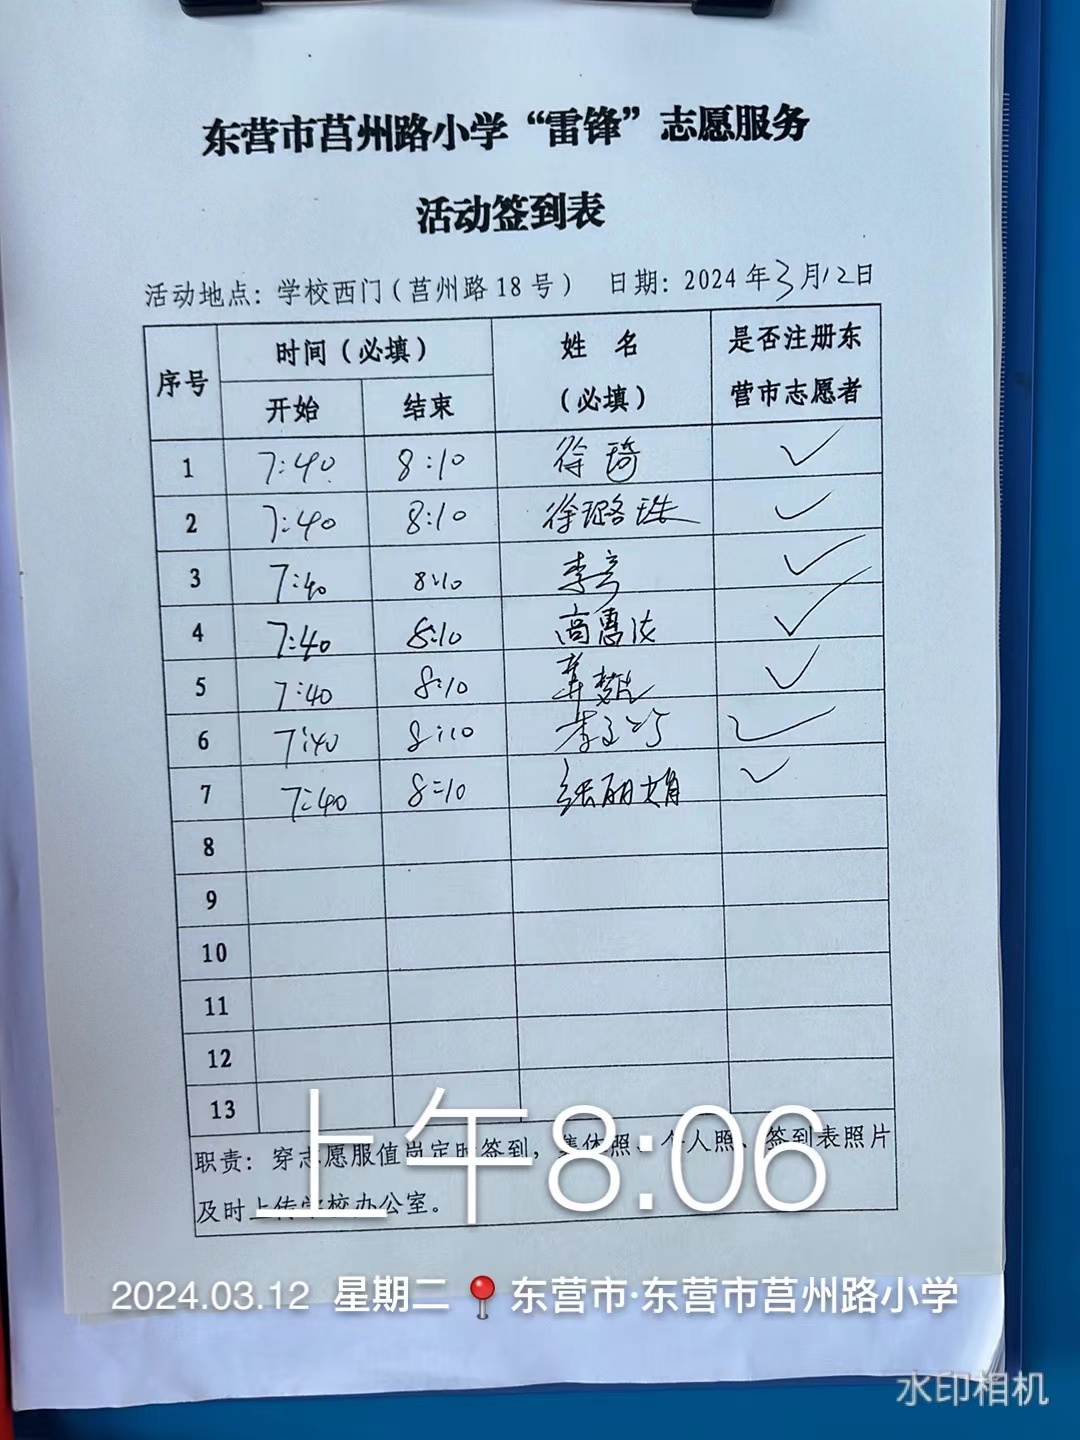 东营市莒州路小学“雷锋”志愿服务
活动签到表
活动地点：学校西门（莒州路18号） 日期：2024年3月12日
序号 时间（必填） 姓 名（必填） 是否注册东营市志愿者
开始 结束
1 7:40 8:10 徐琦 ✓
2 7:40 8:10 徐璐珠 ✓
3 7:40 8:10 李 ✓
4 7:40 8:10 高惠 ✓
5 7:40 8:10 ✓
6 7:40 8:10 李 ✓
7 7:40 8:10 张丽娟 ✓
8
9
10
11
12
13
职责：穿志愿服值岗定时签到，集体照、个人照、签到表照片
及时上传学校办公室。
上午8:06
2024.03.12 星期二 东营市·东营市莒州路小学
水印相机